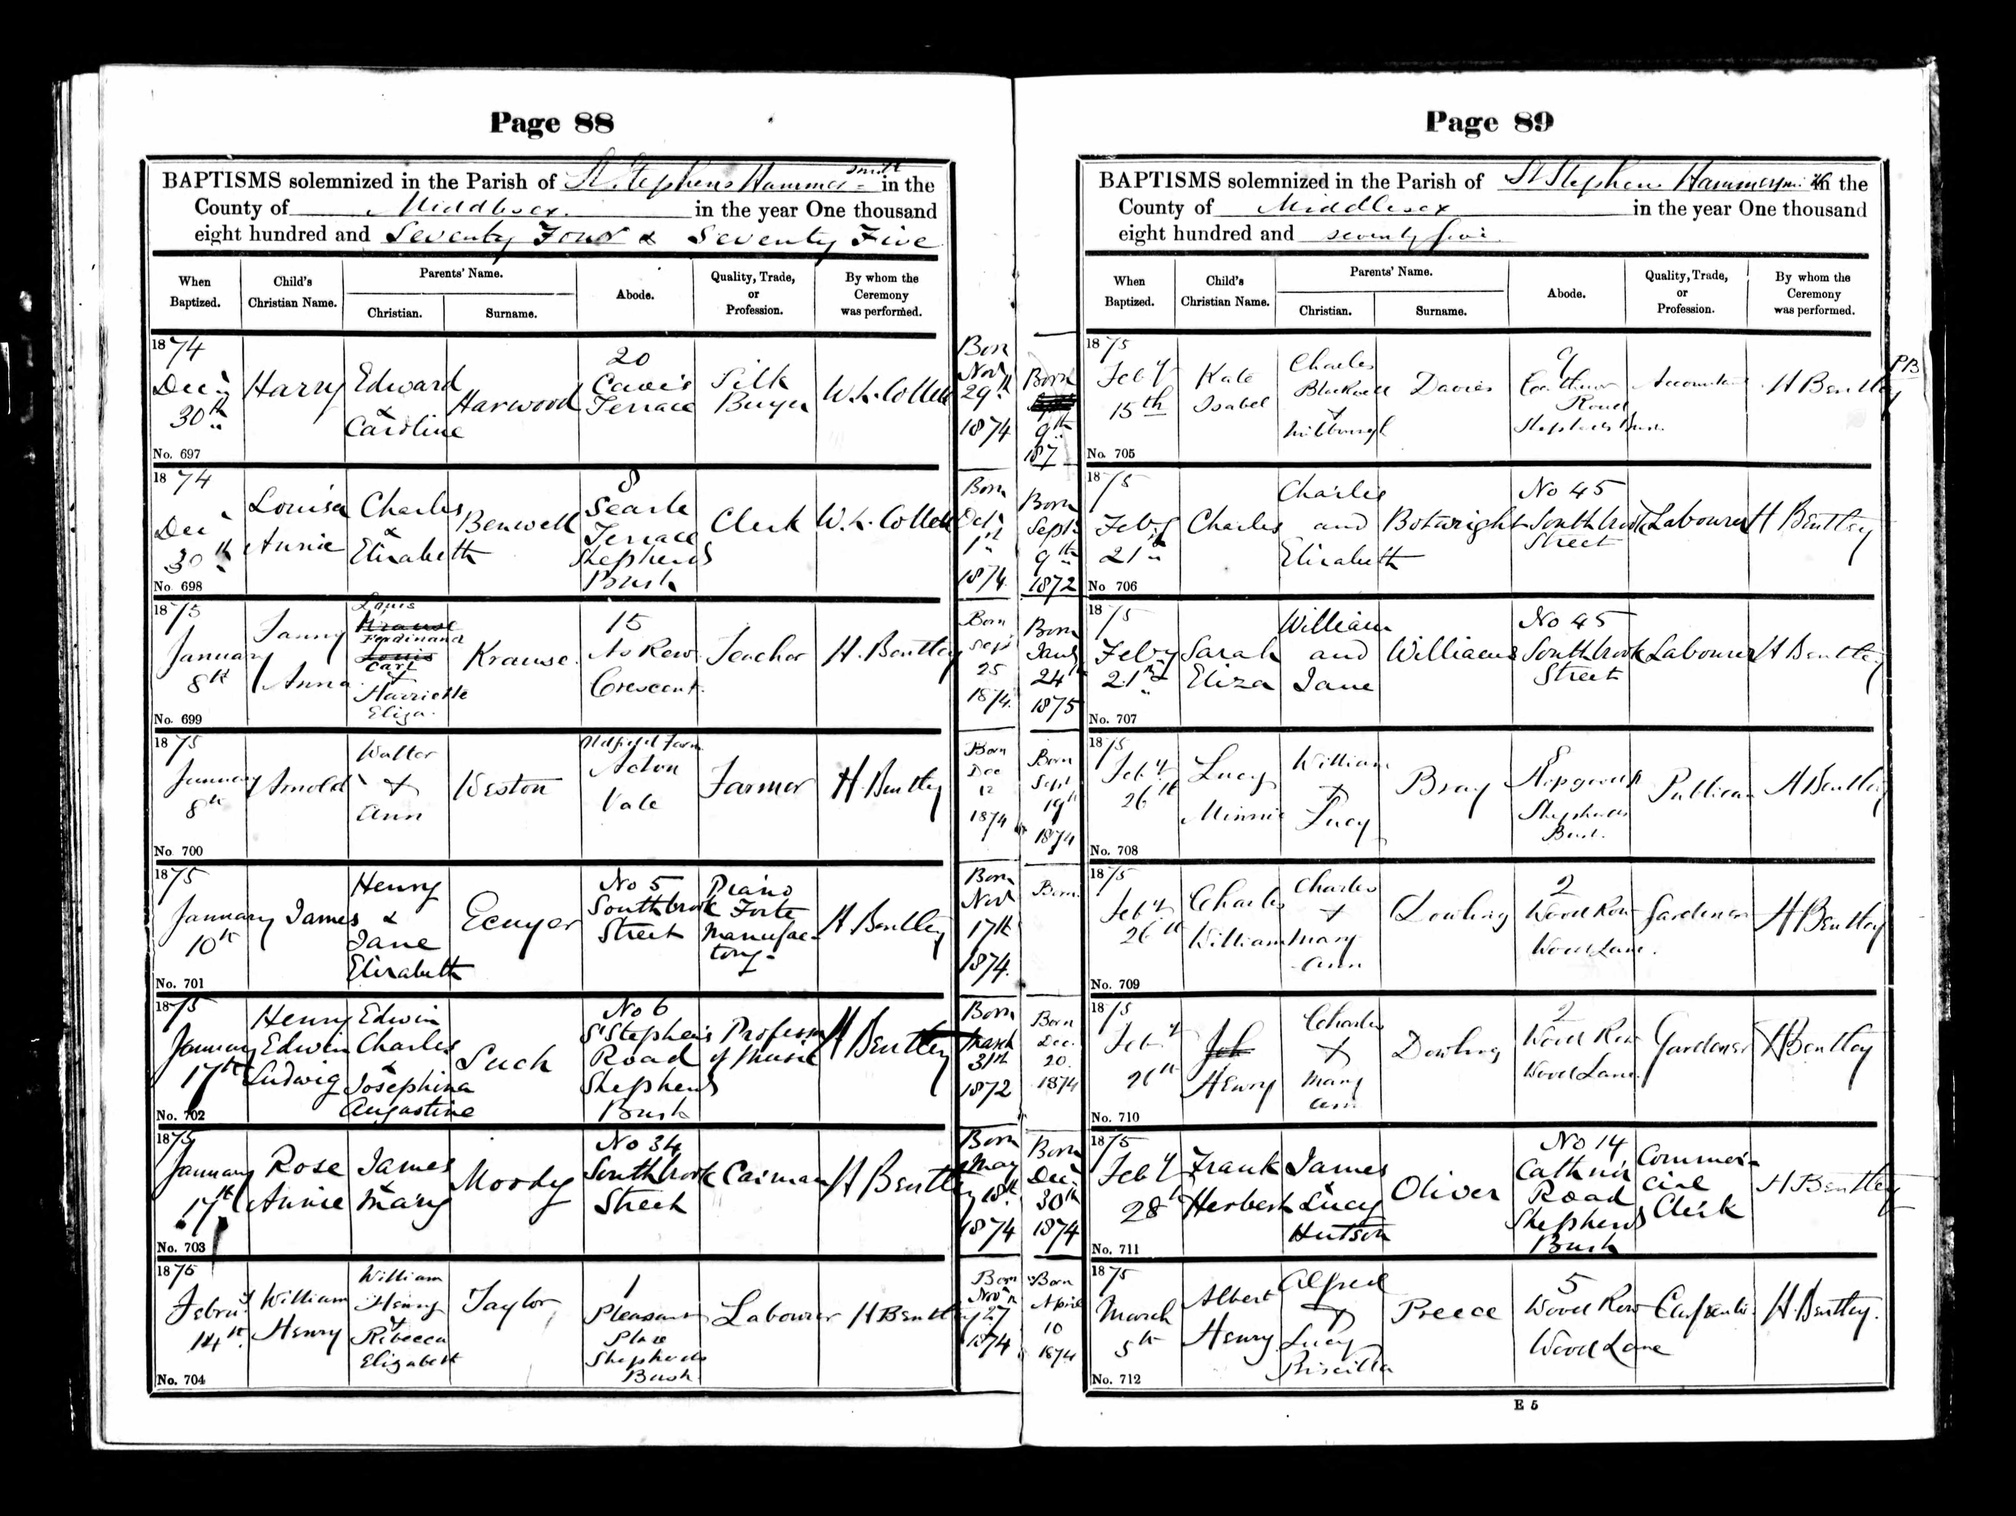 Page 88
BAPTISMS solemnized in the Parish of St Stephens Hammersmith in the
County of Middlesex in the year One thousand
eight hundred and Seventy Four & Seventy Five
When Baptized.
Child's Christian Name.
Parents' Name.
Christian.
Surname.
Abode.
Quality, Trade, or Profession.
By whom the Ceremony was performed.
1874
Decr
30th
No. 697
Harry
Edward
&
Caroline
Harwood
20
Terrace
Silk
Buyer
W. L. Collett
Born
Novr
29th
1874
1874
Decr
30th
No. 698
Louisa
Annie
Charles
&
Elizabeth
Benwell
8
Searle
Terrace
Shepherds
Bush
Clerk
W. L. Collett
Born
Octr
1st
1874
1875
January
8th
No. 699
Fanny
Anna
Louis
Krause
Ferdinand
Louis
Carl
+
Harriette
Eliza.
Krause.
15
Crescent
Teacher
H. Bentley
Born
Sept
25
1874.
1875
January
8th
No. 700
Arnold
Walter
+
Ann
Weston
Oldfield Farm
Acton
Vale
Farmer
H. Bentley
Born
Dec
12
1874
1875
January
10th
No. 701
James
Henry
&
Jane
Elizabeth
Ecuyer
No 5
Southbrook
Street
Piano
Forte
Manufac-
tory-
H Bentley
Born
Novr
17th
1874.
1875
January
17th
No. 702
Henry
Edwin
Ludwig
Edwin
Charles
&
Josephina
Augastine
Such
No 6
St Stephen's
Road
Shepherds
Bush
Professor
of Music
H Bentley
Born
March
31st
1872
1875
January
17th
No. 703
Rose
Annie
James
&
Mary
Moody
No 34
Southbrook
Street
Carman
H Bentley
Born
May
18th
1874
1875
Februy
14th
No. 704
William
Henry
William
Henry
+
Rebecca
Elizabeth
Taylor
1
Pleasant
Place
Shepherds
Bush.
Labourer
H Bentley
Born
Novr
27
1874
Page 89
BAPTISMS solemnized in the Parish of St Stephens Hammersmith in the
County of Middlesex in the year One thousand
eight hundred and seventy five
When Baptized.
Child's Christian Name.
Parents' Name.
Christian.
Surname.
Abode.
Quality, Trade, or Profession.
By whom the Ceremony was performed.
Born
9th
187
1875
Feby
15th
No. 705
Kate
Isabel
Charles
Blackwell
+
Davies
9
Road
Shepherds Bush.
Accountant
H Bentley
PB
Born
Septr
9th
1872
1875
Feby
21st
No 706
Charles
Charles
and
Elizabeth
Botwright
No 45
Southbrook
Street
Labourer
H Bentley
Born
Jany
24th
1875
1875
Feby
21st
No. 707
Sarah
Eliza
William
and
Jane
Williams
No 45
Southbrook
Street
Labourer
H Bentley
Born
Sept
19th
1874
1875
Feby
26th
No. 708
Lucy
Minnie
William
+
Lucy
Bray
Shepherds
Bush.
Publican
H Bentley
Born
1875
Feby
26th
No. 709
Charles
William
Charles
+
Mary
Ann
Dowling
2
Wood Row
Wood Lane.
Gardener
H Bentley
Born
Dec.
20.
1874
1875
Feby
26th
No. 710
Joh
Henry
Charles
+
Mary
Ann
Dowling
2
Wood Row
Wood Lane.
Gardener
H Bentley
Born
Decr
30th
1874
1875
Feby
28th
No. 711
Frank
Herbert
James
&
Lucy
Hutson
Oliver
No 14
Cathnor
Road
Shepherds
Bush
Commer-
cial
Clerk
H Bentley
Born
April
10
1874
1875
March
5th
No. 712
Albert
Henry
Alfred
+
Lucy
Priscilla
Preece
5
Wood Row
Wood Lane
Carpenter
H. Bentley.
E 5